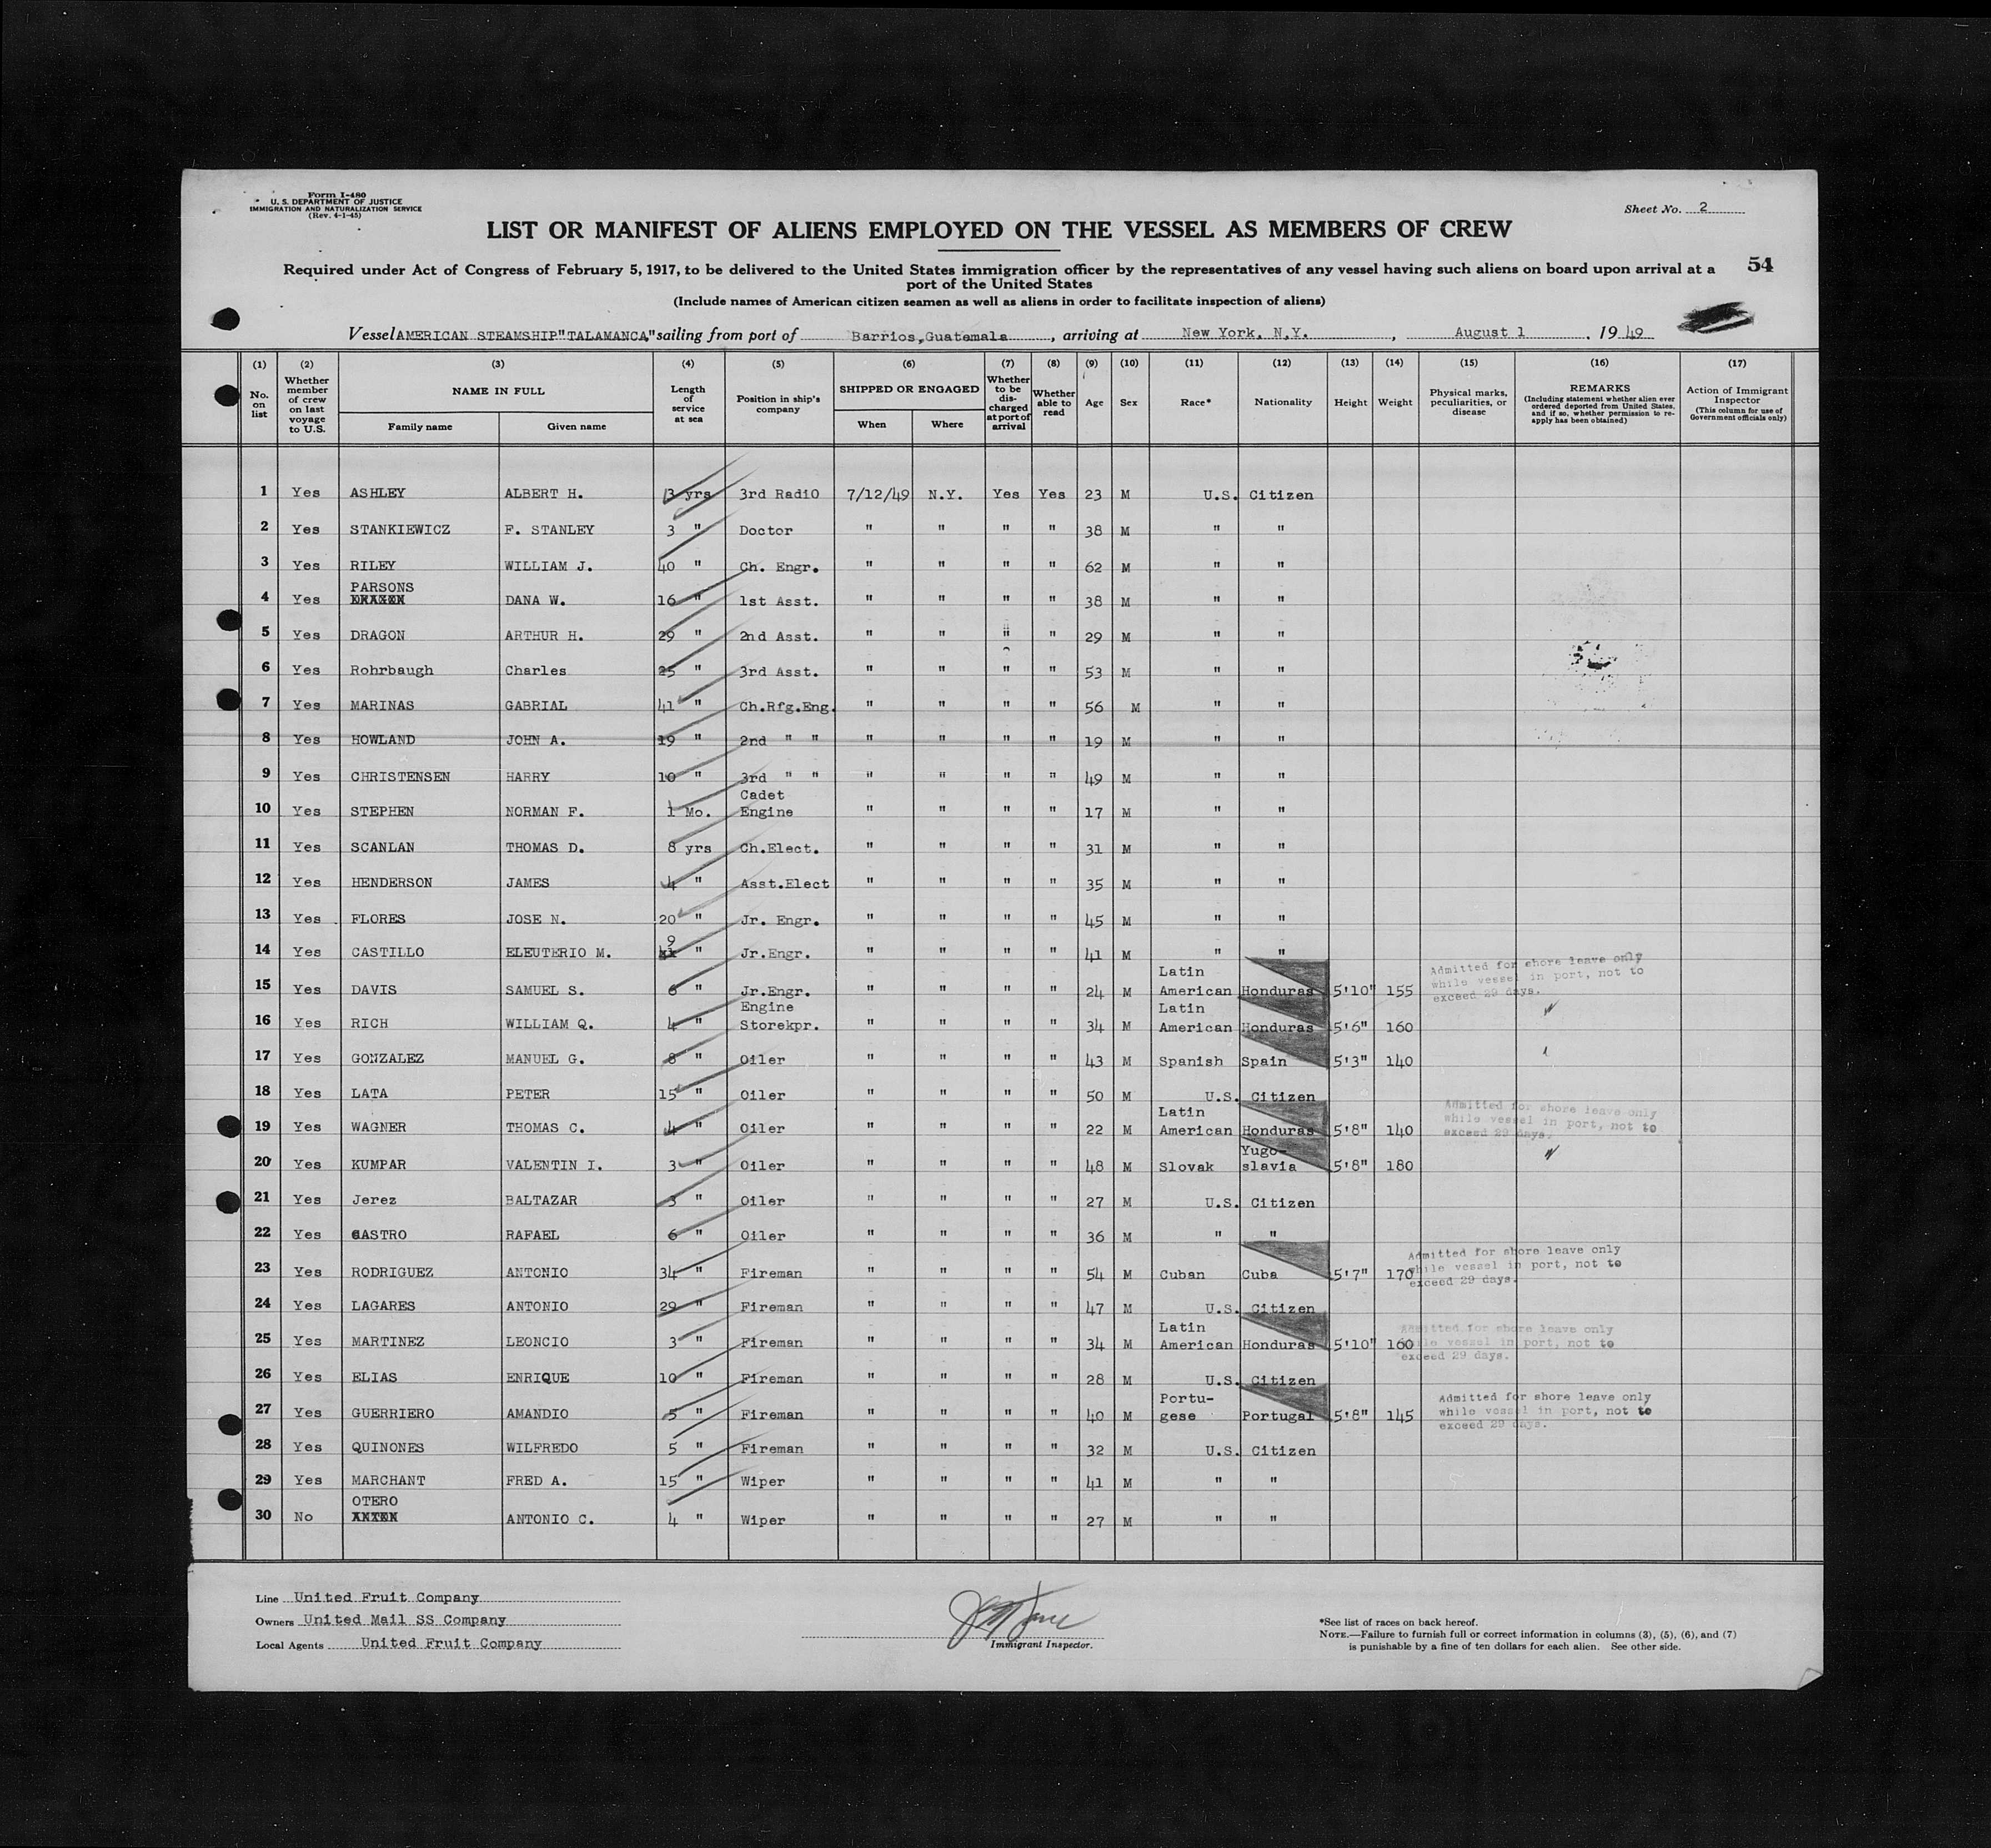 Form I-480
U. S. DEPARTMENT OF JUSTICE
IMMIGRATION AND NATURALIZATION SERVICE
(Rev. 4-1-45)
Sheet No. 2
LIST OR MANIFEST OF ALIENS EMPLOYED ON THE VESSEL AS MEMBERS OF CREW
Required under Act of Congress of February 5, 1917, to be delivered to the United States immigration officer by the representatives of any vessel having such aliens on board upon arrival at a
port of the United States
54
(Include names of American citizen seamen as well as aliens in order to facilitate inspection of aliens)
Vessel AMERICAN STEAMSHIP "TALAMANCA," sailing from port of Barrios, Guatemala, arriving at New York, N.Y., August 1, 1949
(1) (2) (3) (4) (5) (6) (7) (8) (9) (10) (11) (12) (13) (14) (15) (16) (17)
No. on list
Whether member of crew on last voyage to U.S.
NAME IN FULL
Family name
Given name
Length of service at sea
Position in ship's company
SHIPPED OR ENGAGED
When
Where
Whether to be discharged at port of arrival
Whether able to read
Age
Sex
Race*
Nationality
Height
Weight
Physical marks, peculiarities, or disease
REMARKS
(Including statement whether alien ever ordered deported from United States, and if so, whether permission to re-apply has been obtained)
Action of Immigrant Inspector
(This column for use of Government officials only)
1 Yes ASHLEY ALBERT H. 3 yrs 3rd RadiO 7/12/49 N.Y. Yes Yes 23 M U.S. Citizen
2 Yes STANKIEWICZ F. STANLEY 3 " Doctor " " " " 38 M " "
3 Yes RILEY WILLIAM J. 40 " Ch. Engr. " " " " 62 M " "
4 Yes PARSONS DANA W. 16 " 1st Asst. " " " " 38 M " "
5 Yes DRAGON ARTHUR H. 29 " 2nd Asst. " " " " 29 M " "
6 Yes Rohrbaugh Charles 25 " 3rd Asst. " " " " 53 M " "
7 Yes MARINAS GABRIAL 41 " Ch.Rfg.Eng. " " " " 56 M " "
8 Yes HOWLAND JOHN A. 19 " 2nd " " " " " " 19 M " "
9 Yes CHRISTENSEN HARRY 10 " 3rd " " " " " " 49 M " "
10 Yes STEPHEN NORMAN F. 1 Mo. Cadet Engine " " " " 17 M " "
11 Yes SCANLAN THOMAS D. 8 yrs Ch.Elect. " " " " 31 M " "
12 Yes HENDERSON JAMES 4 " Asst.Elect " " " " 35 M " "
13 Yes FLORES JOSE N. 20 " Jr. Engr. " " " " 45 M " "
14 Yes CASTILLO ELEUTERIO M. 9 " Jr.Engr. " " " " 41 M " "
15 Yes DAVIS SAMUEL S. 6 " Jr.Engr. " " " " 24 M Latin American Honduras 5'10" 155 Admitted for shore leave only while vessel in port, not to exceed 29 days.
16 Yes RICH WILLIAM Q. 4 " Engine Storekpr. " " " " 34 M Latin American Honduras 5'6" 160
17 Yes GONZALEZ MANUEL G. 8 " Oiler " " " " 43 M Spanish Spain 5'3" 140
18 Yes LATA PETER 15 " Oiler " " " " 50 M U.S. Citizen
19 Yes WAGNER THOMAS C. 4 " Oiler " " " " 22 M Latin American Honduras 5'8" 140 Admitted for shore leave only while vessel in port, not to exceed 29 days.
20 Yes KUMPAR VALENTIN I. 3 " Oiler " " " " 48 M Slovak Yugo-slavia 5'8" 180
21 Yes Jerez BALTAZAR 3 " Oiler " " " " 27 M U.S. Citizen
22 Yes CASTRO RAFAEL 6 " Oiler " " " " 36 M " "
23 Yes RODRIGUEZ ANTONIO 34 " Fireman " " " " 54 M Cuban Cuba 5'7" 170 Admitted for shore leave only while vessel in port, not to exceed 29 days.
24 Yes LAGARES ANTONIO 29 " Fireman " " " " 47 M U.S. Citizen
25 Yes MARTINEZ LEONCIO 3 " Fireman " " " " 34 M Latin American Honduras 5'10" 160 Admitted for shore leave only while vessel in port, not to exceed 29 days.
26 Yes ELIAS ENRIQUE 10 " Fireman " " " " 28 M U.S. Citizen
27 Yes GUERRIERO AMANDIO 5 " Fireman " " " " 40 M Portu-gese Portugal 5'8" 145 Admitted for shore leave only while vessel in port, not to exceed 29 days.
28 Yes QUINONES WILFREDO 5 " Fireman " " " " 32 M U.S. Citizen
29 Yes MARCHANT FRED A. 15 " Wiper " " " " 41 M " "
30 No OTERO ANTONIO C. 4 " Wiper " " " " 27 M " "
Line United Fruit Company
Owners United Mail SS Company
Local Agents United Fruit Company
Immigrant Inspector.
*See list of races on back hereof.
NOTE.—Failure to furnish full or correct information in columns (3), (5), (6), and (7)
is punishable by a fine of ten dollars for each alien. See other side.